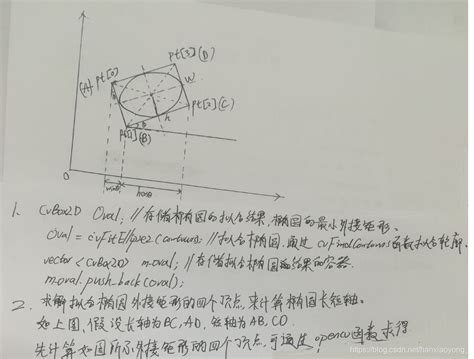 pt[3](D)
(A) pt[0]
w
pt[2](C)
h
θ
pt[1](B)
0
1. CvBox2D Oval; //存储椭圆的拟合结果,椭圆的最小外接矩形。
Oval = cvFitEllipse2(contours); //拟合椭圆,通过cvFindContours函数拟合轮廓。
vector<CvBox2D> m.oval; //存储拟合椭圆结果的容器.
m.oval.push.back(oval);
2. 求解拟合椭圆外接矩形的四个顶点,来计算椭圆长短轴。
如上图,假设长轴为BC,AD,短轴为AB,CD.
先计算如图所示外接矩形的四个顶点,可通过opencv函数求得
https://blog.csdn.net/hanxiaoyong_